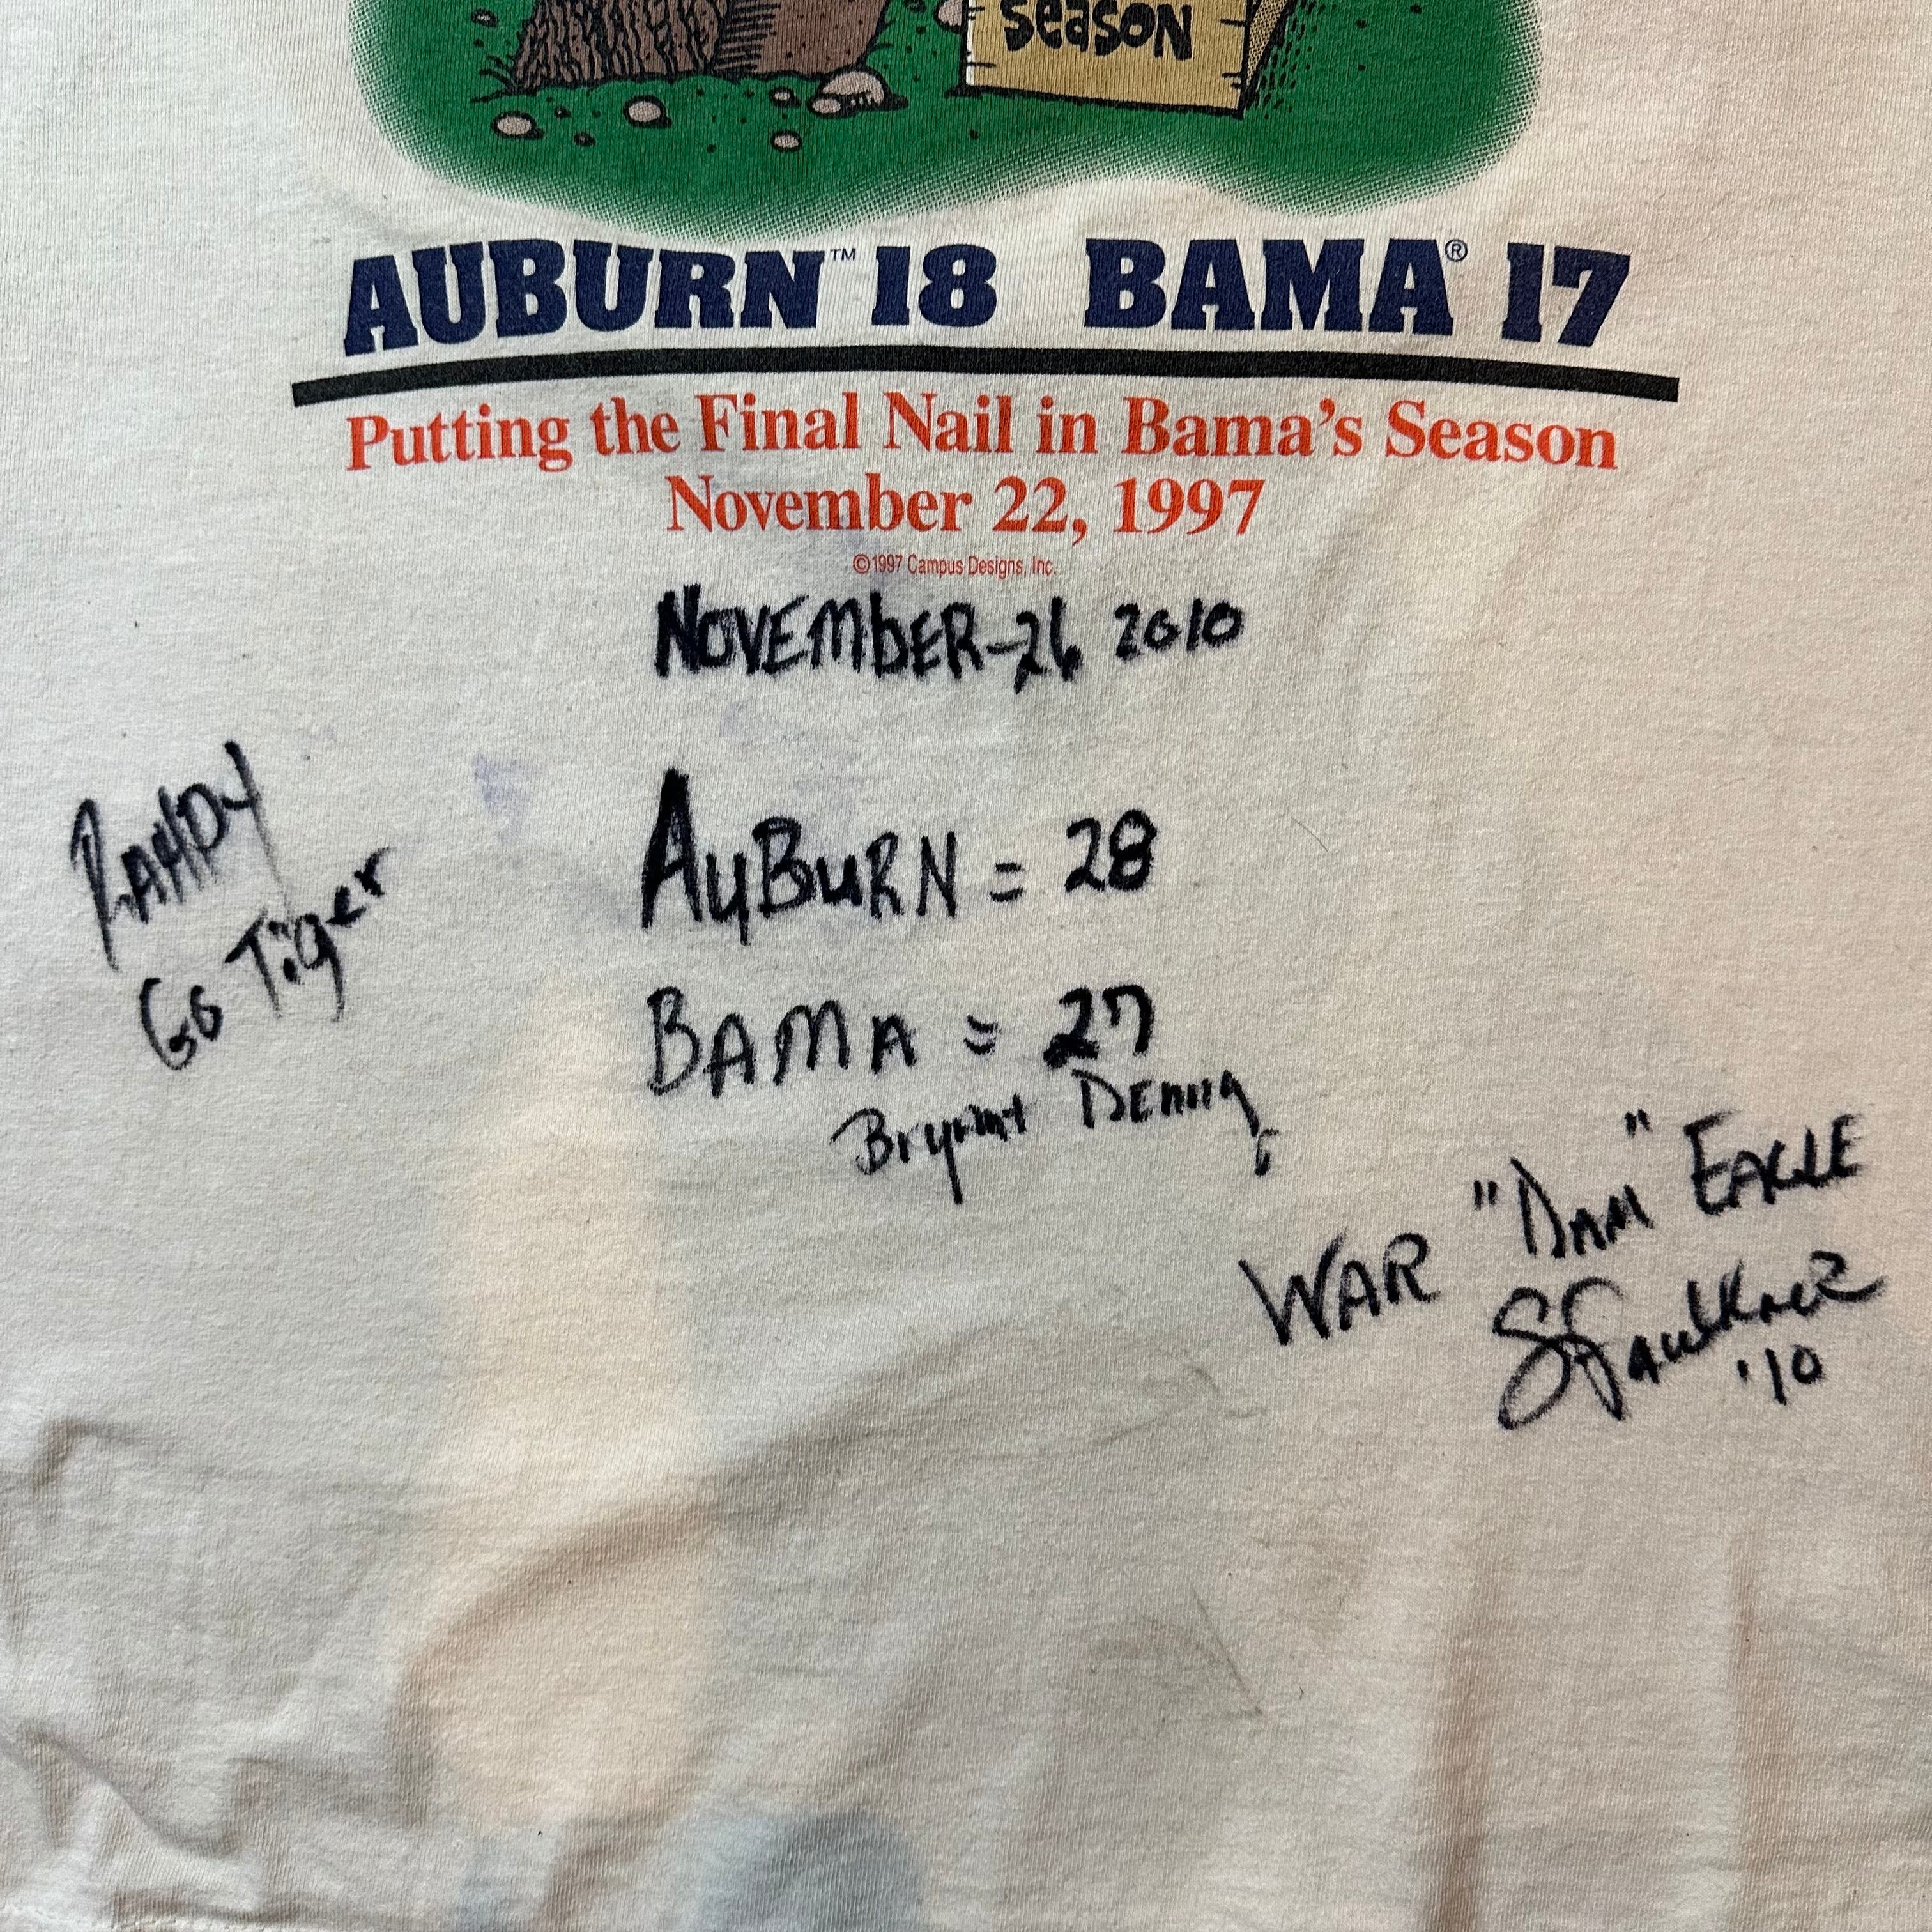 season
AUBURN™ 18 BAMA® 17
Putting the Final Nail in Bama's Season
November 22, 1997
©1997 Campus Designs, Inc.
NOVEMbER-26 2010
RANDY
Go Tiger
AuBuRN = 28
BAMA = 27
Bryant DENNy
WAR "DAM" EAGLE
Faulkner
'10